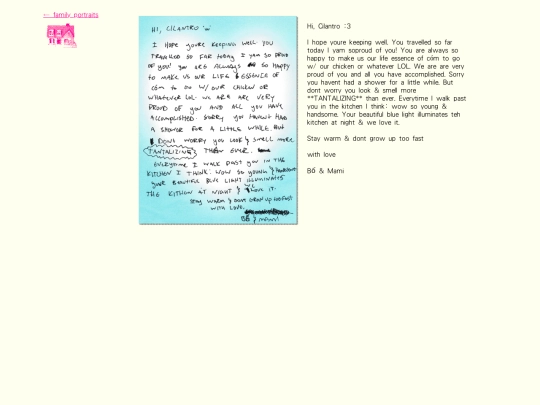 <- family portraits
HI, CILANTRO
I HOPE YOU'RE KEEPING WELL YOU
TRAVELLED SO FAR today I yam SO PROUD
OF YOU! YOU ARE ALWAYS SO HAPPY
TO MAKE US OUR LIFE ESSENCE OF
CÓM TO GO W/ OUR CHICKEN OR
WHATEVER LOL. WE ARE ARE VERY
PROUD OF YOU AND ALL YOU HAVE
ACCOMPLISHED. SORRY YOU HAVENT HAD
A SHOWER FOR A LITTLE WHILE. BUT
DONT WORRY YOU LOOK & SMELL MORE
TANTALIZING THAN EVER.
EVERYTIME I WALK PAST YOU IN THE
KITCHEN I THINK: WOW SO YOUNG & HANDSOME
YOUR BEAUTIFUL BLUE LIGHT ILLUMINATES
THE KITCHEN AT NIGHT & WE LOVE IT.
STAY WARM & DONT GROW UP TOO FAST
WITH LOVE,
BỐ & MAMI
Hi, Cilantro :3
I hope youre keeping well. You travelled so far
today I yam soproud of you! You are always so
happy to make us our life essence of cóm to go
w/ our chicken or whatever LOL. We are are very
proud of you and all you have accomplished. Sorry
you havent had a shower for a little while. But
dont worry you look & smell more
**TANTALIZING** than ever. Everytime I walk past
you in the kitchen I think: wow so young &
handsome. Your beautiful blue light illuminates teh
kitchen at night & we love it.
Stay warm & dont grow up too fast
with love
Bố & Mami